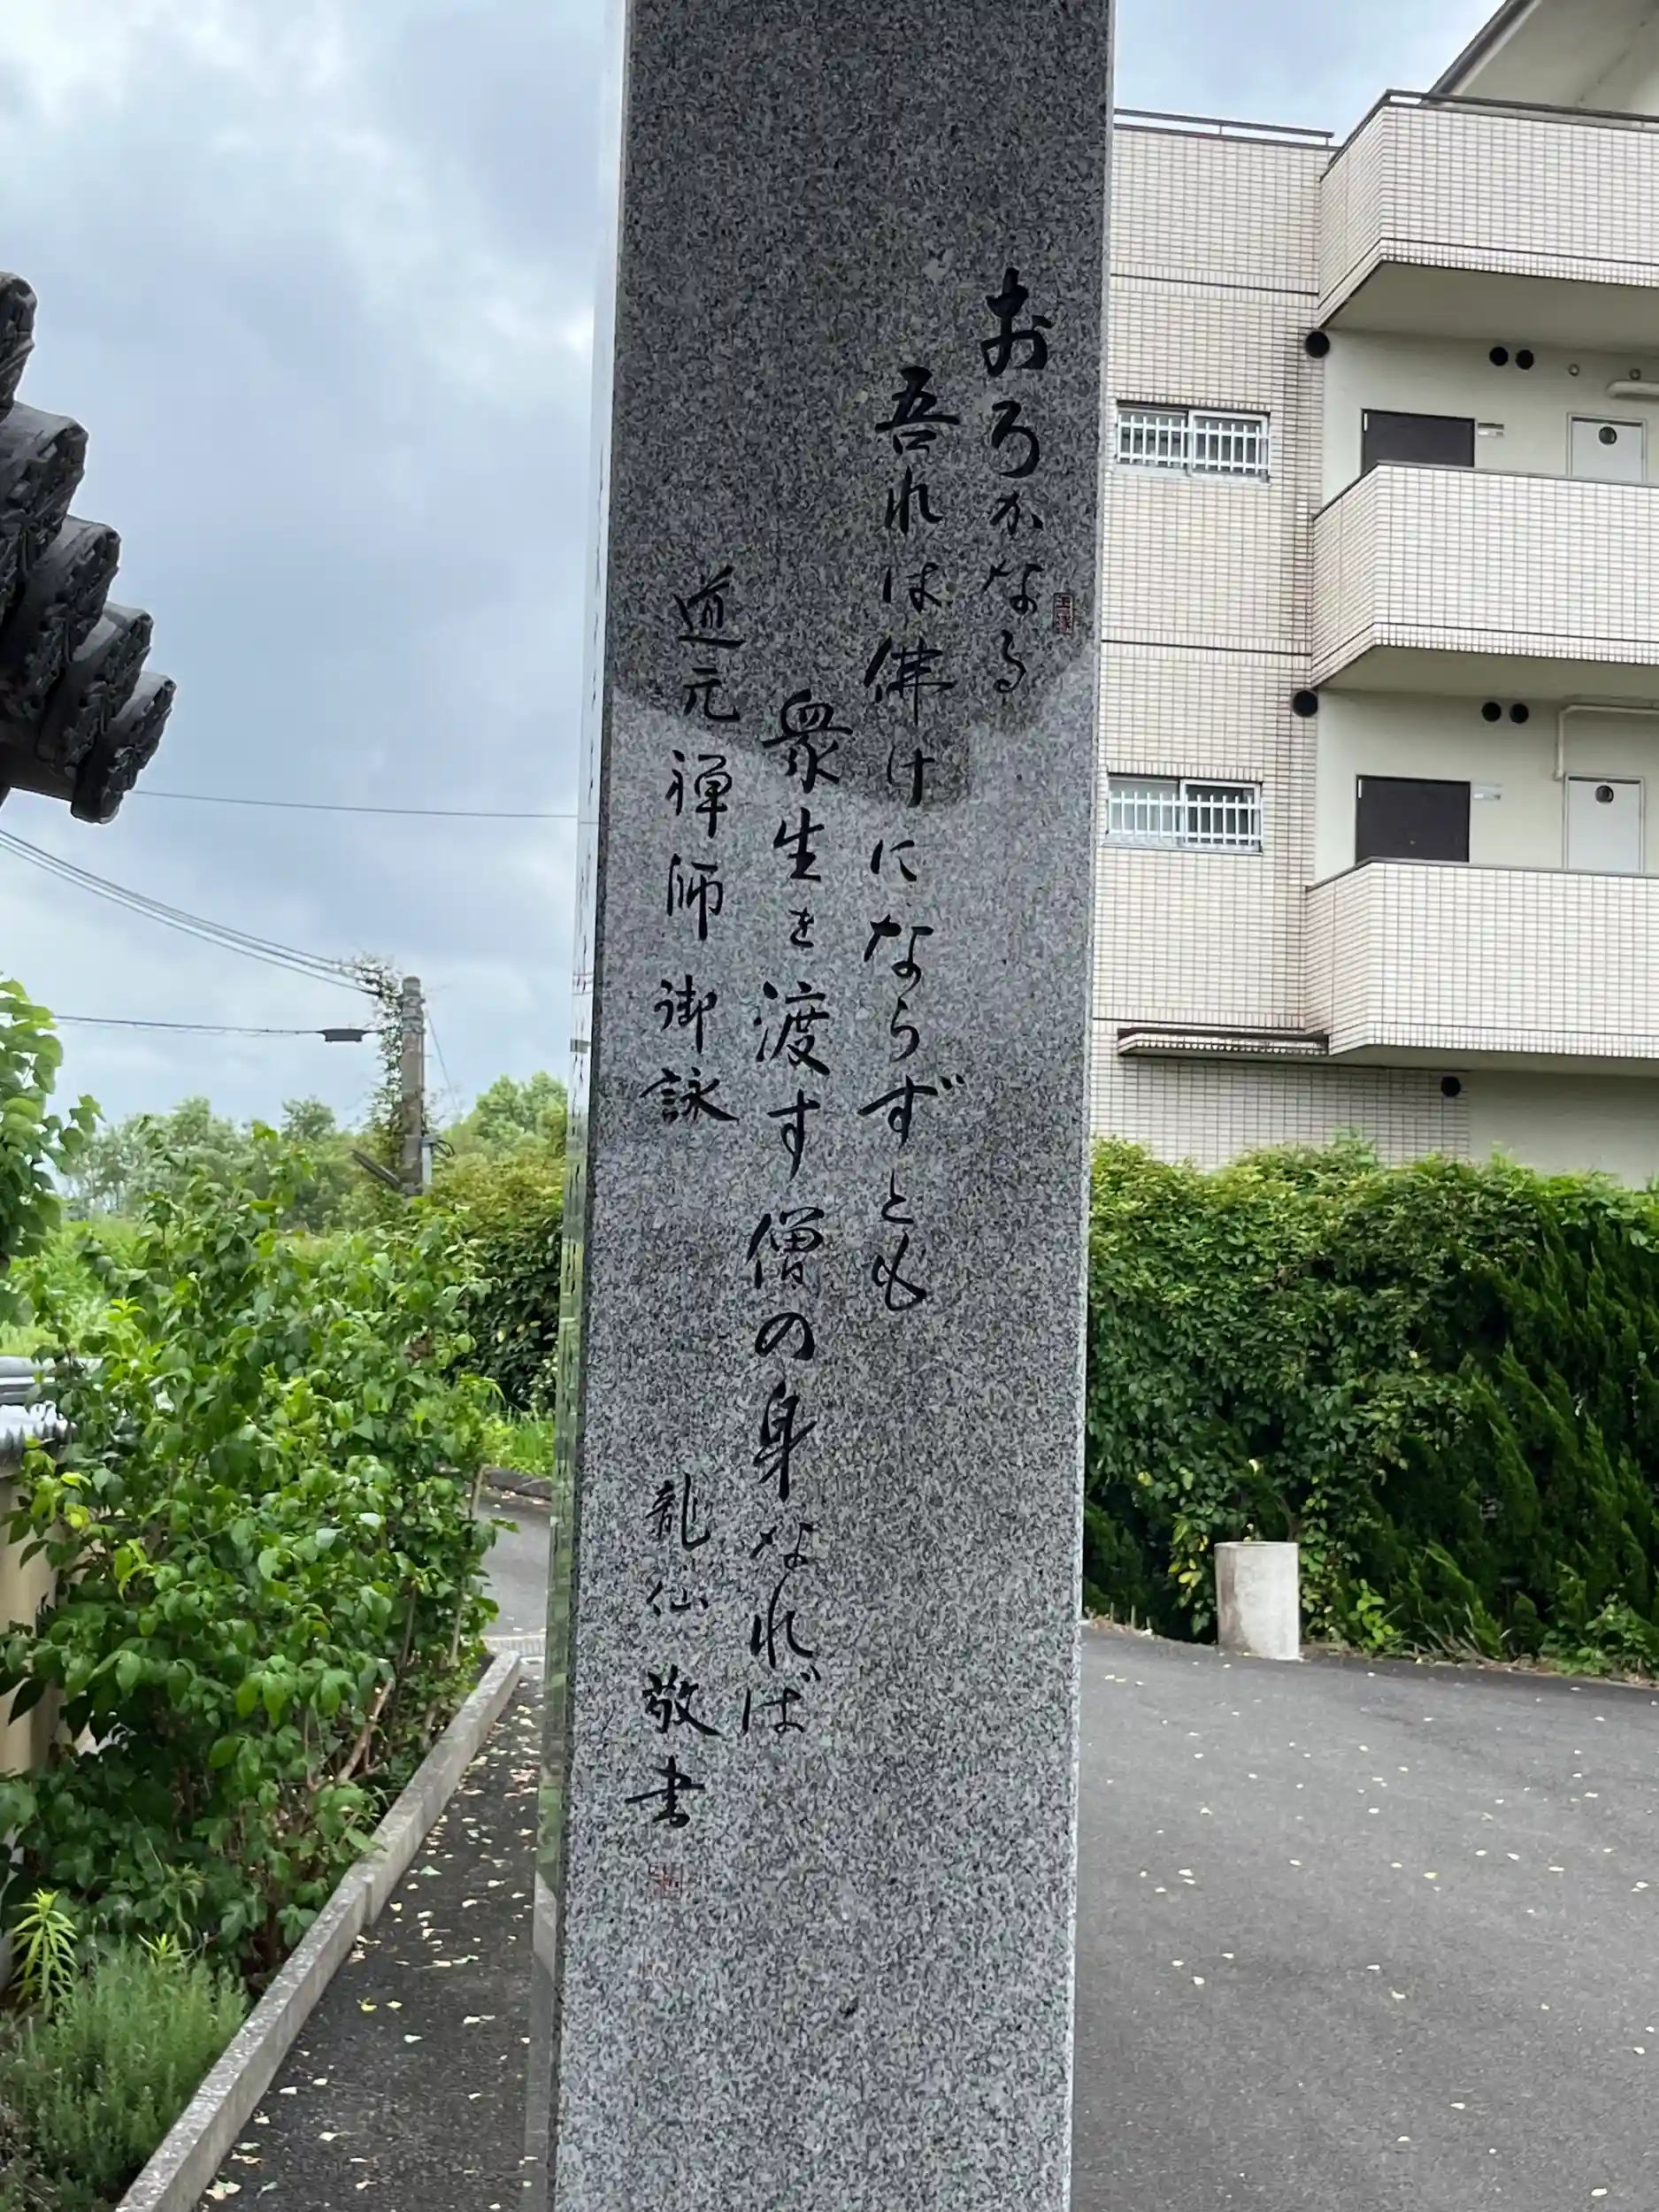 おろかなる
吾れは佛けにならずとも
衆生を渡す僧の身なれば
道元禅師御詠 龍仙敬書